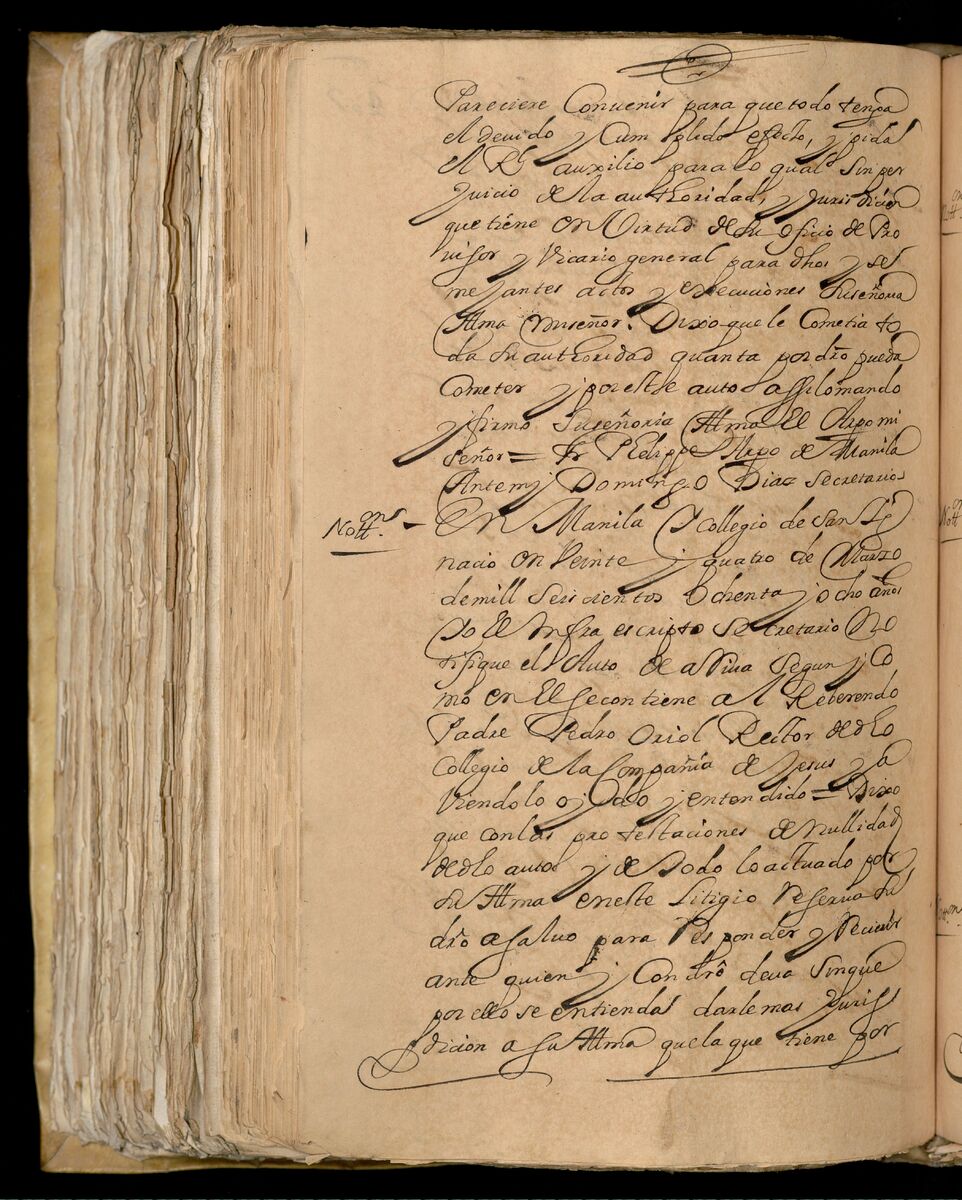 Pareciere Convenir para que todo tenga
el devido y Cumplido efecto, y pida
el Rl auxilio para lo qual sin per
Juicio de la authoridad, y Jurisdicion
que tiene en Virtud de su oficio de Pro
uisor y Vicario general para dhos y se
mejantes actos y execuciones suseñoria
Illma miseñor. Dixo que le Cometia to
da su authoridad quanta por dro pueda
Cometer y por este auto assi lo mando
y firmo Suseñoria Illma El Arpo mi
señor = Fr Phelippe Arpo de Manila
Antemj Domingo Diaz secretario
Notton. – En Manila y Collegio de San Ig
nacio en Veinte y quatro de Marzo
de mill seiscientos ochenta y ocho años
Yo El Infraescripto secretario No
tifique el Auto de arriua segun y Co
mo en El se contiene al Reverendo
Padre Pedro Oriol Rector de dho
Collegio de la Compañia de Jesus y a
viendolo oydo y entendido = Dixo
que con las protestaciones de nullidad
de dho auto y de todo lo actuado por
su Illma en este litigio reserua su
dro asaluo para Responder y Decir
ante quien y Con dro deua sin que
por ello se entienda darle mas Juris
dicion a su Illma que la que tiene por